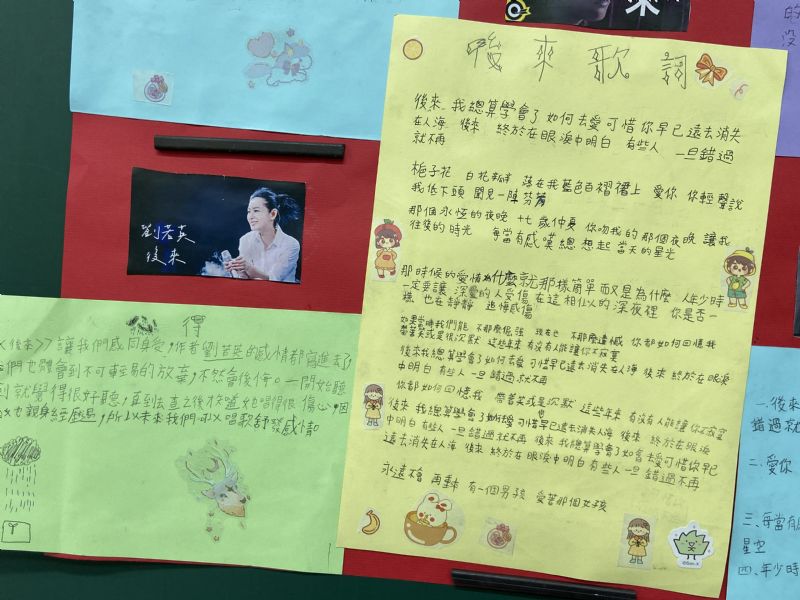 來
的
沒
後來歌詞
後來 我總算學會了 如何去愛 可惜你早已遠去 消失
在人海 後來 終於在眼淚中明白 有些人 一旦錯過
就不再
梔子花 白花瓣 落在我藍色百褶裙上 愛你 你輕聲說
我低下頭 聞見一陣芬芳
那個永恆的夜晚 十七歲仲夏 你吻我的那個夜晚 讓我
往後的時光 每當有感嘆 總想起 當天的星光
那時候的愛情為什麼就那樣簡單 而又是為什麼 人年少時
一定要讓 深愛的人受傷 在這相似的深夜裡 你是否一
樣 也在靜靜 追悔感傷
如果當時我們能 不那麼倔強 現在也 不那麼遺憾 你都如何回憶我
帶著笑或是很沉默 這些年來 有沒有人能讓你不寂寞
後來我總算學會了如何去愛 可惜你早已遠去消失在人海 後來 終於在眼淚
中明白 有些人 一旦錯過就不再
你都如何回憶我 帶著笑或是沉默 這些年來 有沒有人能讓你不寂寞
後來 我總算學會了如何去愛 可惜你早已遠去消失人海 後來 終於在眼淚
中明白 有些人 一旦錯過就不再 後來 我總算學會了如何去愛 可惜你早已
遠去消失在人海 後來 終於在眼淚中明白 有些人 一旦 錯過不再
永遠不會 再重來 有一個男孩 愛著那個女孩
劉若英
後來
得
<<後來>> 讓我們感同身受,作者劉若英的感情都寫進去了
們也體會到不可輕易的放棄,不然會後悔。一開始聽
到就覺得很好聽,再到去查之後才知道她唱得很傷心,因
她也親身經歷過,所以未來我們可以唱歌舒發感情
一、後來
錯過就
二、愛你
三、每當有感
星空
四、年少時